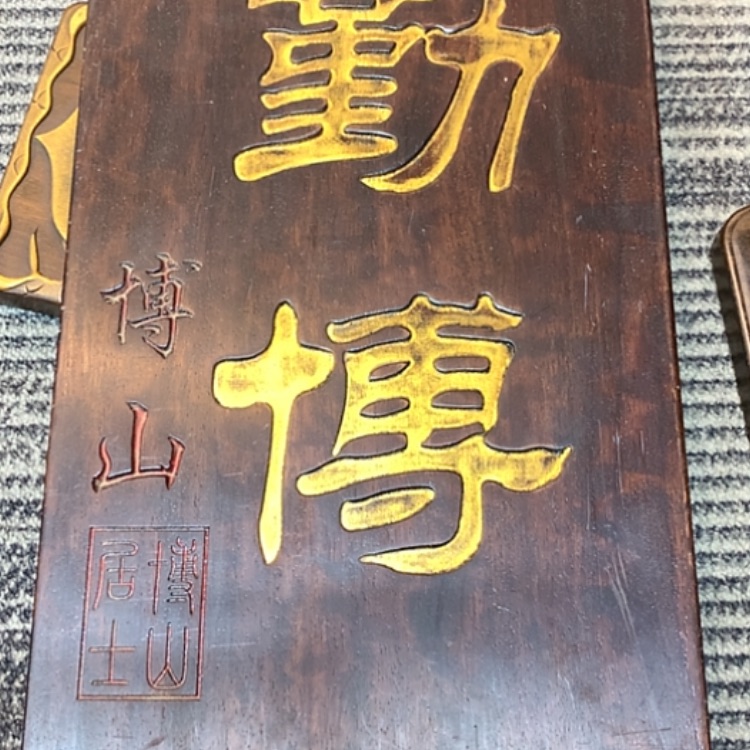 勤博
博山
博山居士